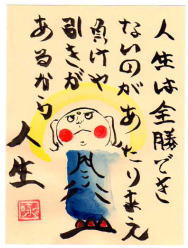 人生は全勝でき
ないのがあたりまえ
負けや
引きが
あるから
人生